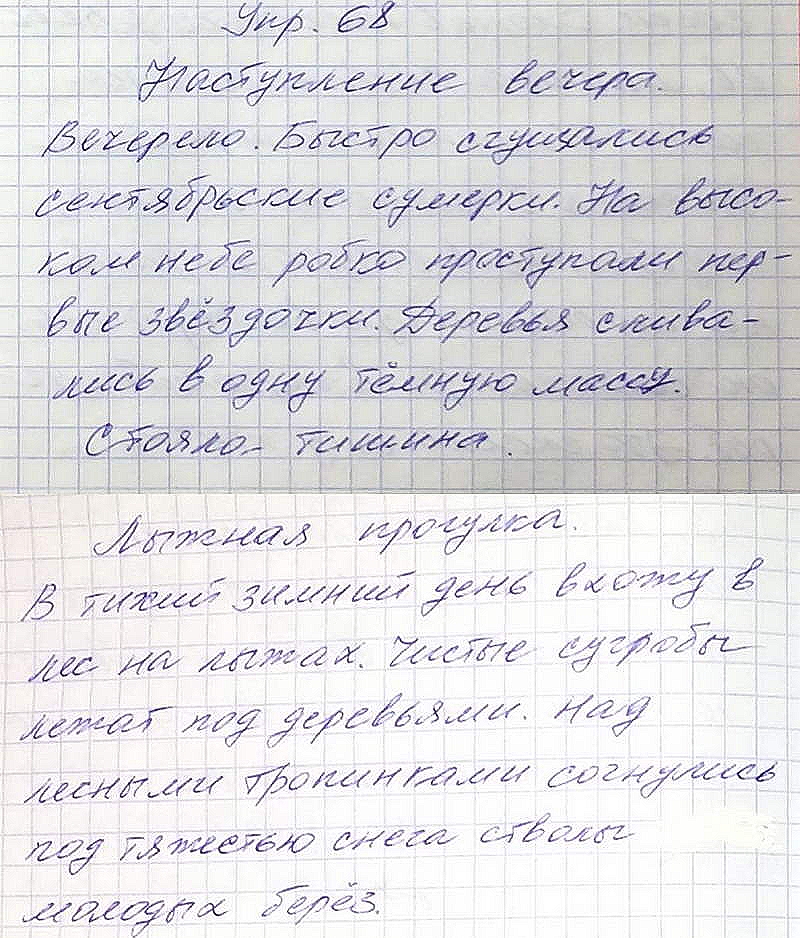 Упр. 68
Наступление вечера.
Вечерело. Быстро сгущались
сентябрьские сумерки. На высо-
ком небе робко проступали пер-
вые звёздочки. Деревья слива-
лись в одну тёмную массу.
Стояла тишина.
Лыжная прогулка.
В тихий зимний день вхожу в
лес на лыжах. Чистые сугробы
лежат под деревьями. Над
лесными тропинками согнулись
под тяжестью снега стволы
молодых берёз.